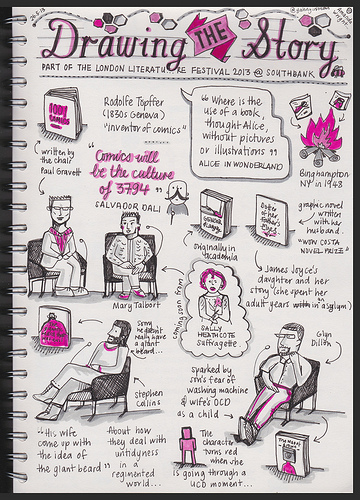 26.5.13
Drawing THE Story
PART OF THE LONDON LITERATURE FESTIVAL 2013 @ SOUTHBANK
Rodolfe Topffer
(1830s Geneva)
"inventor of comics"
"Where is the
use of a book,
thought Alice,
without pictures
or illustrations"
ALICE IN WONDERLAND
Binghampton
NY in 1948
written by
the chair
Paul Gravett
"Comics will
be the culture
of 3794"
SALVADOR DALI
originally in
academia
Dotter
of her
Father's
Eyes
graphic novel
written
with her
husband.
"WON COSTA
NOVEL PRIZE"
Mary Talbott
coming soon from
SALLY
HEATHCOTE
Suffragette.
James Joyce's
daughter and her
story (she spent her
adult years in an asylum)
Sorry
he didn't
really have
a giant
beard...
Stephen
Collins
Glyn
Dillon
sparked by
son's fear of
washing machine
& wife's OCD
as a child
"His wife
come up with
the idea of
the giant beard"
About how
they deal with
untidyness
in a
regimented
world...
The
character
turns red
when she
is going through a
OCD moment...